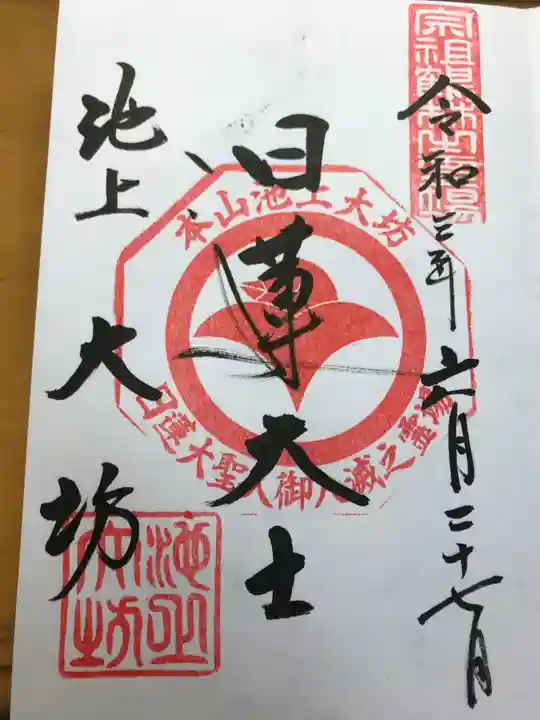 宗祖鶴林之靈場
令和三年六月二十七日
日蓮大士
本山池上大坊
日蓮大聖人御入滅之靈場
池上
大坊
池上大坊